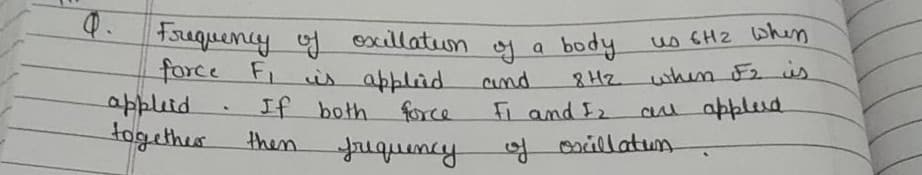 Q. Frequency of oscillation of a body is 6HZ when
force F1 is applied and 8HZ when F2 is
applied. If both force F1 and F2 are applied
together then frequency of oscillation.